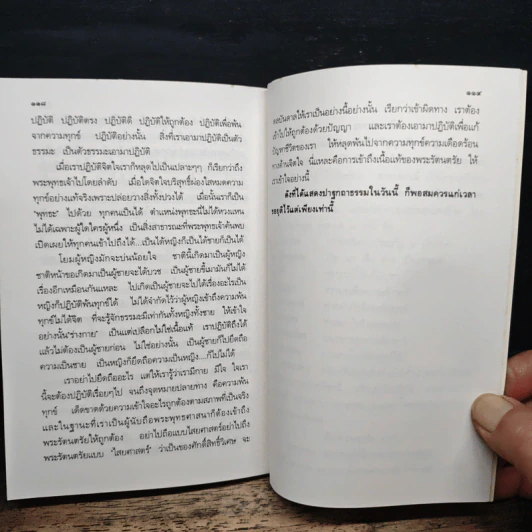 ๑๑๘
ปฏิบัติ ปฏิบัติตรง ปฏิบัติดี ปฏิบัติให้ถูกต้อง ปฏิบัติเพื่อพ้น
จากความทุกข์ ปฏิบัติอย่างนั้น สิ่งที่เราเอามาปฏิบัติเป็นตัว
ธรรมะ เป็นตัวธรรมะเอามาปฏิบัติ
เมื่อเราปฏิบัติจิตใจเราก็หลุดไปเป็นเปลาะๆๆ ก็เรียกว่าถึง
พระพุทธเจ้าไปโดยลำดับ เมื่อใดจิตใจบริสุทธิ์ผ่องใสหมดความ
ทุกข์อย่างแท้จริงเพราะปล่อยวางสิ่งทั้งปวงได้ เมื่อนั้นเราก็เป็น
"พุทธะ" ไปด้วย ทุกคนเป็นได้ ตำแหน่งพุทธะนี่ไม่ได้หวงแหน
ไม่ได้เฉพาะผู้ใดใครผู้หนึ่ง เป็นสิ่งสาธารณะที่พระพุทธเจ้าค้นพบ
เปิดเผยให้ทุกคนเข้าไปถึงได้...เป็นได้หญิงก็เป็นได้ชายก็เป็นได้
โยมผู้หญิงมักจะบ่นน้อยใจ ชาตินี้เกิดมาเป็นผู้หญิง
ชาติหน้าขอเกิดมาเป็นผู้ชายจะได้บวช เป็นผู้ชายขี้เมามันก็ไม่ได้
เรื่องอีกเหมือนกันแหละ ไปเกิดเป็นผู้ชายจะไปได้เรื่องอะไรเป็น
หญิงก็ปฏิบัติพ้นทุกข์ได้ ไม่ได้จำกัดไว้ว่าผู้หญิงเข้าถึงความพ้น
ทุกข์ไม่ได้จิต ที่จะรู้จักธรรมะมีเท่ากันทั้งหญิงทั้งชาย ให้เข้าใจ
อย่างนั้น"ร่างกาย" เป็นแต่เปลือกไม่ใช่เนื้อแท้ เราปฏิบัติถึงได้
แล้วไม่ต้องเป็นผู้ชายก่อน ไม่ใช่อย่างนั้น เป็นผู้ชายก็ไปยึดถือ
ความเป็นชาย เป็นหญิงก็ยึดถือความเป็นหญิง....ก็ไปไม่ได้
เราอย่าไปยึดถืออะไร แต่ให้เรารู้ว่าเรามีกาย มีใจ ใจเรา
นี้จะต้องปฏิบัติเรื่อยๆไป จนถึงจุดหมายปลายทาง คือความพ้น
ทุกข์ เด็ดขาดด้วยความเข้าใจอะไรถูกต้องตามสภาพที่เป็นจริง
และในฐานะที่เราเป็นผู้นับถือพระพุทธศาสนาก็ต้องเข้าถึง
พระรัตนตรัยให้ถูกต้อง อย่าไปถือแบบไสยศาสตร์อย่าไปถึง
พระรัตนตรัยแบบ "ไสยศาสตร์" ว่าเป็นของศักดิ์สิทธิ์วิเศษ จะ
๑๑๙
ดลบันดาลให้เราเป็นอย่างนี้อย่างนั้น เรียกว่าเข้าผิดทาง เราต้อง
เข้าไปให้ถูกต้องด้วยปัญญา และเราต้องเอามาปฏิบัติเพื่อแก้
ปัญหาชีวิตของเรา ให้หลุดพ้นไปจากความทุกข์ความเดือดร้อน
ทางด้านจิตใจ นี่แหละคือการเข้าถึงเนื้อแท้ของพระรัตนตรัย ให้
เราเข้าใจอย่างนี้
ดังที่ได้แสดงปาฐกถาธรรมในวันนี้ ก็พอสมควรแก่เวลา
ขอยุติไว้แต่เพียงเท่านี้